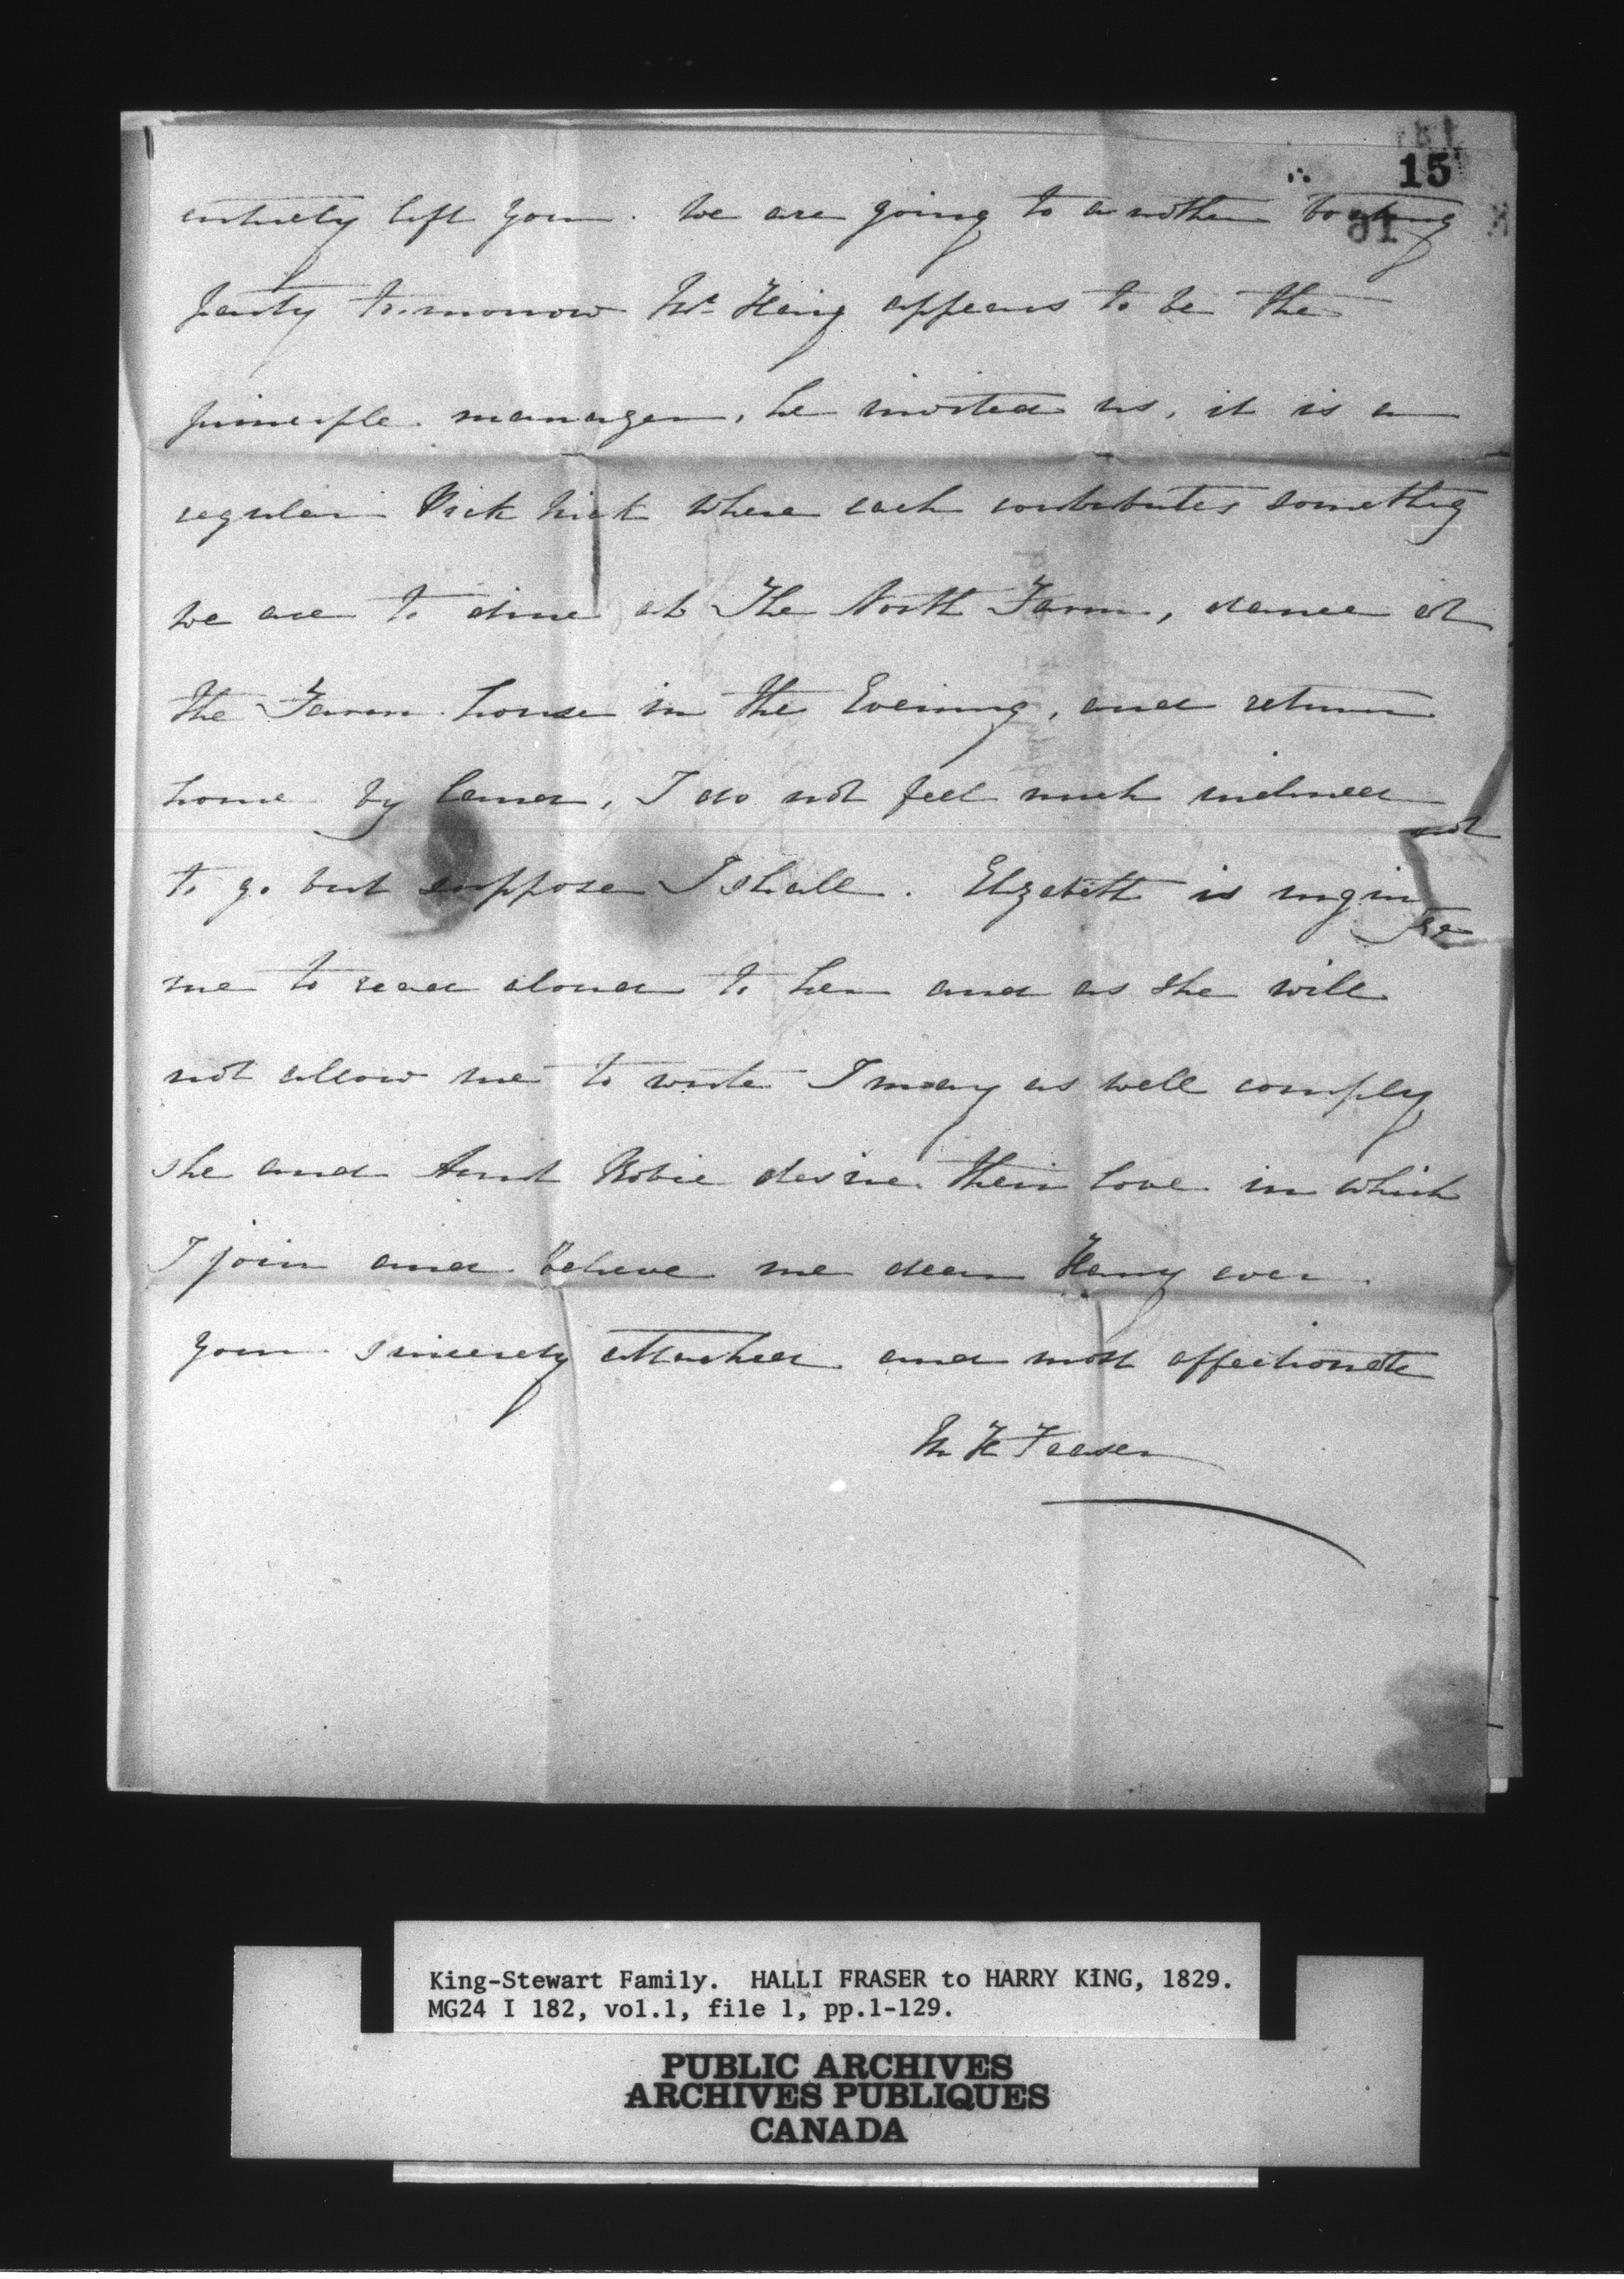 15
entirely left you. We are going to another boating
party to.morrow Mr. Haig appears to be the
principle manager, he invited us, it is a
regular Pick Nick where each contributes something
we are to dine at The North Farm, dance at
the Farm house in the Evening, and return
home by land, I do not feel much inclined
to go but suppose I shall. Elizabeth is urging
me to read aloud to her and as she will
not allow me to write I may as well comply
she and Aunt Robie desire their love in which
I join and believe me dear Harry ever
your sincerely attached and most affectionate
H Fraser
King-Stewart Family. HALLI FRASER to HARRY KING, 1829.
MG24 I 182, vol.1, file 1, pp.1-129.
PUBLIC ARCHIVES
ARCHIVES PUBLIQUES
CANADA